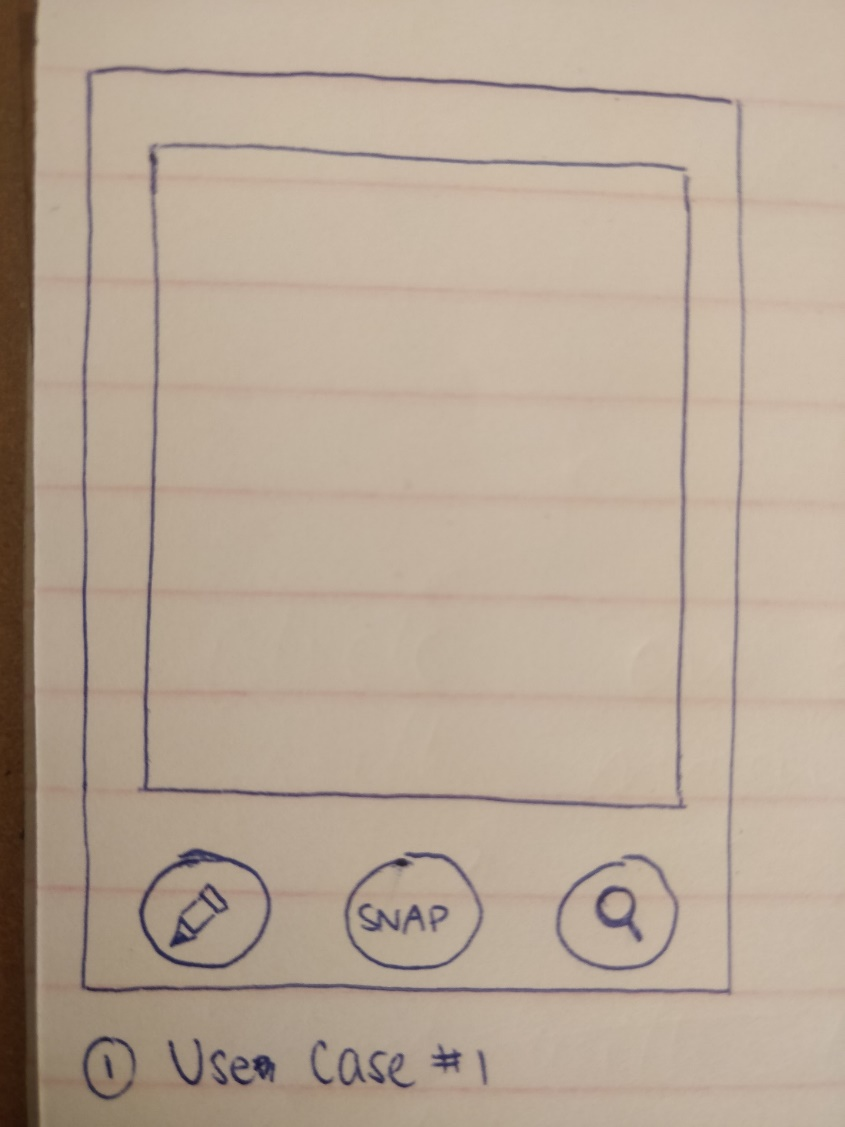 SNAP
① Use Case #1